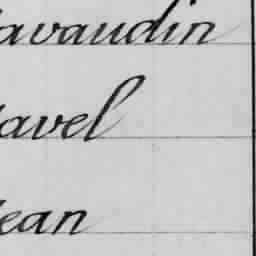 avaudin
avel
ean